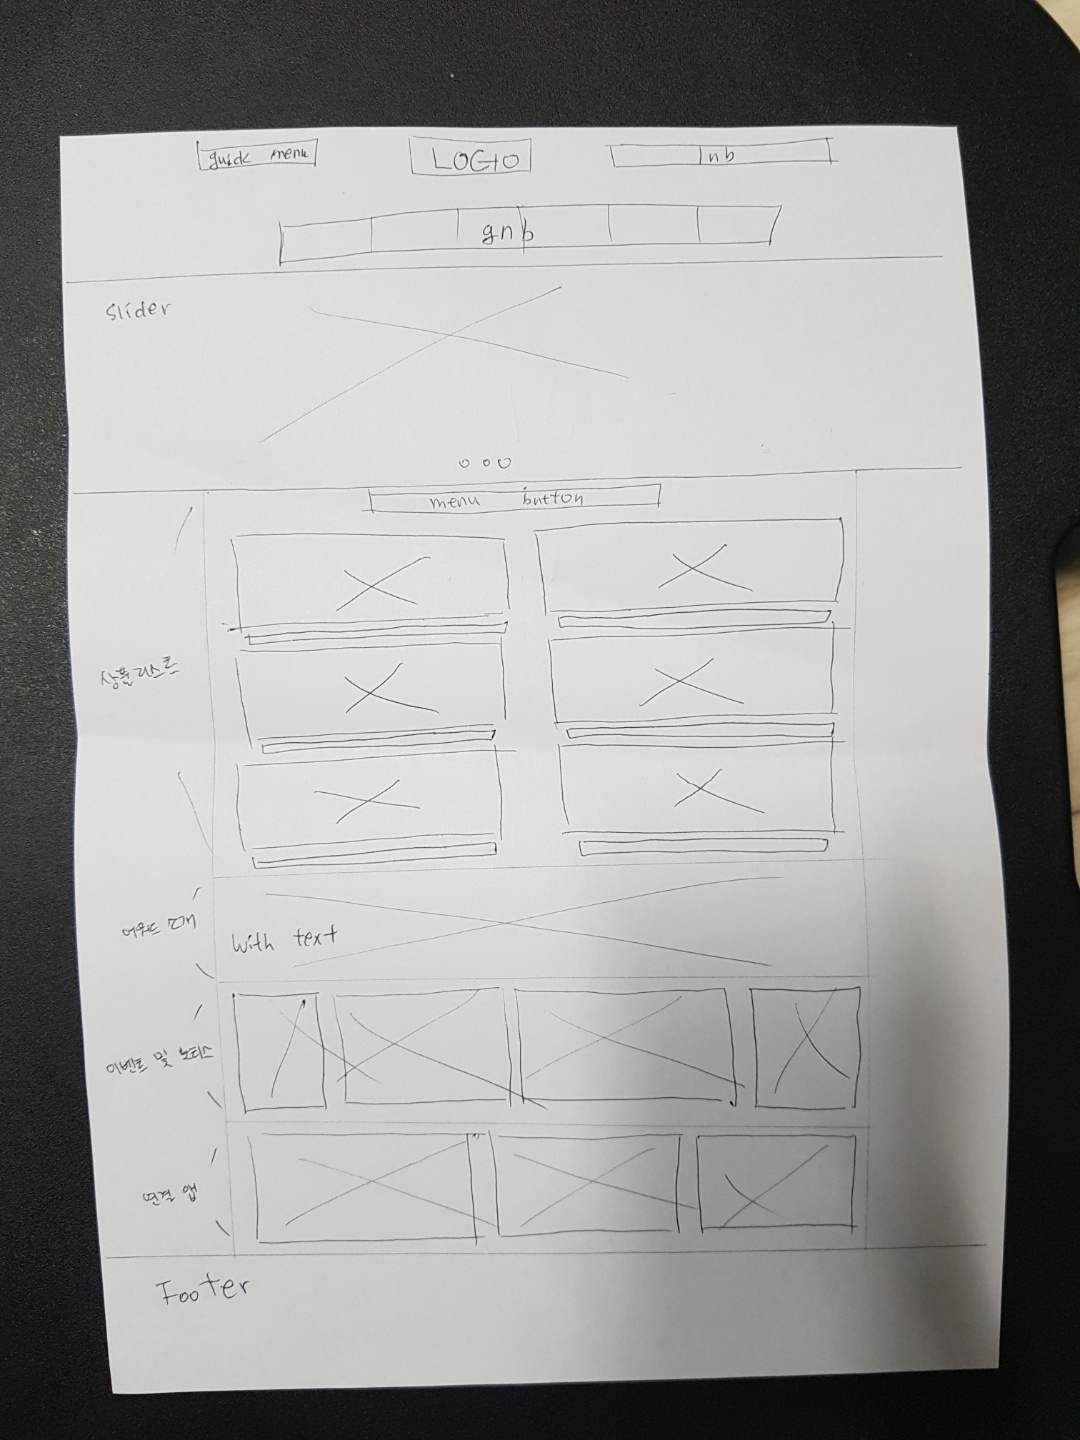 quick menu
LOGO
lnb
gnb
Slider
menu button
상품리스트
어워드 소개
With text
이벤트 및 노티스
연결 앱
Footer